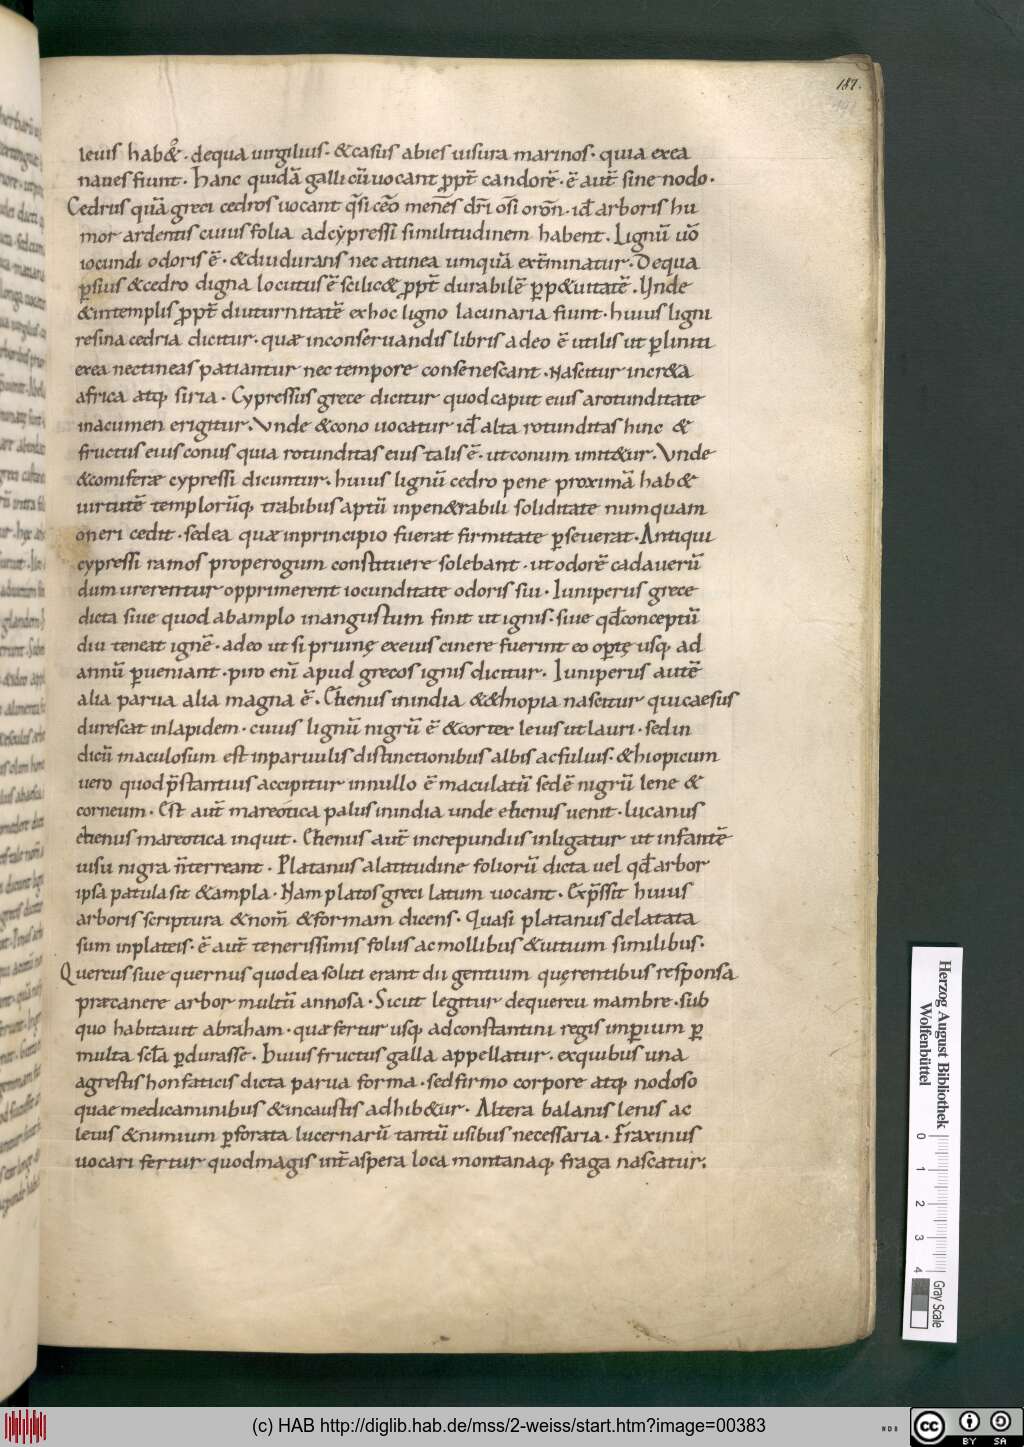 187.
leuis hab&. dequa uirgilius. &casus abies uisura marinos. quia exea
naues fiunt. hanc quidā gallicū uocant ꝓpt̄ candorē. ē aut̄ sine nodo.
Cedrus quā greci cedros uocant q̄si ceo menes dr̄i osi oron. id arboris hu
mor ardentis cuius folia adcypressi similitudinem habent. Lignū uō
iocundi odoris ē. &diu durans nec atinea umquā ext̄minatur. Dequa
ꝑsius &cedro digna locutus ē scilic& ꝓpt̄ durabilē ꝑp&uitatē. Unde
&intemplis ꝓpt̄ diuturnitatē exhoc ligno lacunaria fiunt. huius ligni
resina cedria dicitur. quæ inconseruandis libris adeo ē utilis ut ꝑliniti
exea nectineas patiantur nec tempore consenescant. Nascitur incr&a
africa atq; siria. Cypressus grece dicitur quod caput eius arotunditate
inacumen erigitur. Unde &cono uocatur id alta rotunditas hinc &
fructus eius conus quia rotunditas eius talis ē. ut conum imit&ur. Unde
&coniferæ cypressi dicuntur. huius lignū cedro pene proximā hab&
uirtutē templorūq; trabibus aptū inpen&rabili soliditate numquam
oneri cedit. sed ea quæ inprincipio fuerat firmitate ꝑseuerat. Antiqui
cypressi ramos prope rogum constituere solebant. ut odorē cadauerū
dum urerentur opprimerent iocunditate odoris sui. Iuniperus grece
dicta siue quod abamplo inangustum finit ut ignis. siue qđ conceptū
diu teneat ignē. adeo ut si prunę exeius cinere fuerint eo opertę usq; ad
annū ꝑueniant. piro enī apud grecos ignis dicitur. Iuniperus autē
alia parua alia magna ē. Ebenus inindia &&hiopia nascitur qui caesus
durescat inlapidem. cuius lignū nigrū ē &cortex leuis ut lauri. sed in
dicū maculosum est inparuulis distinctionibus albis acfuluis. &hiopicum
uero quod p̄stantius accipitur innullo ē maculatū sed ē nigrū lene &
corneum. Est aut̄ mareotica palus inindia unde ebenus uenit. lucanus
ebenus mareotica inquit. Ebenus aut̄ increpundiis inligatur ut infantē
uisu nigra n̄ terreant. Platanus alatitudine foliorū dicta uel qđ arbor
ipsa patula sit &ampla. Nam platos greci latum uocant. Exp̄ssit huius
arboris scriptura &nom̄ &formam dicens. Quasi platanus delatata
sum inplateis. ē aut̄ tenerissimis foliis acmollibus &uitium similibus.
Quercus siue quernus quod ea soliti erant dii gentium quęrentibus responsa
præcanere arbor multū annosa. Sicut legitur dequercu mambre. sub
quo habitauit abraham. quæ fertur usq; adconstantini regis imperium ꝑ
multa scl̄a ꝑdurasse. Huius fructus galla appellatur. exquibus una
agrestis honfaticis dicta parua forma. sed firmo corpore atq; nodoso
quae medicaminibus &incaustis adhib&ur. Altera balanis lenis ac
leuis &nimium ꝑforata lucernarū tantū usibus necessaria. Fraxinus
uocari fertur quod magis int̄ aspera loca montanaq; fraga nascatur.
Herzog August Bibliothek
Wolfenbüttel
0 1 2 3 4
Gray Scale
(c) HAB http://diglib.hab.de/mss/2-weiss/start.htm?image=00383
cc BY SA